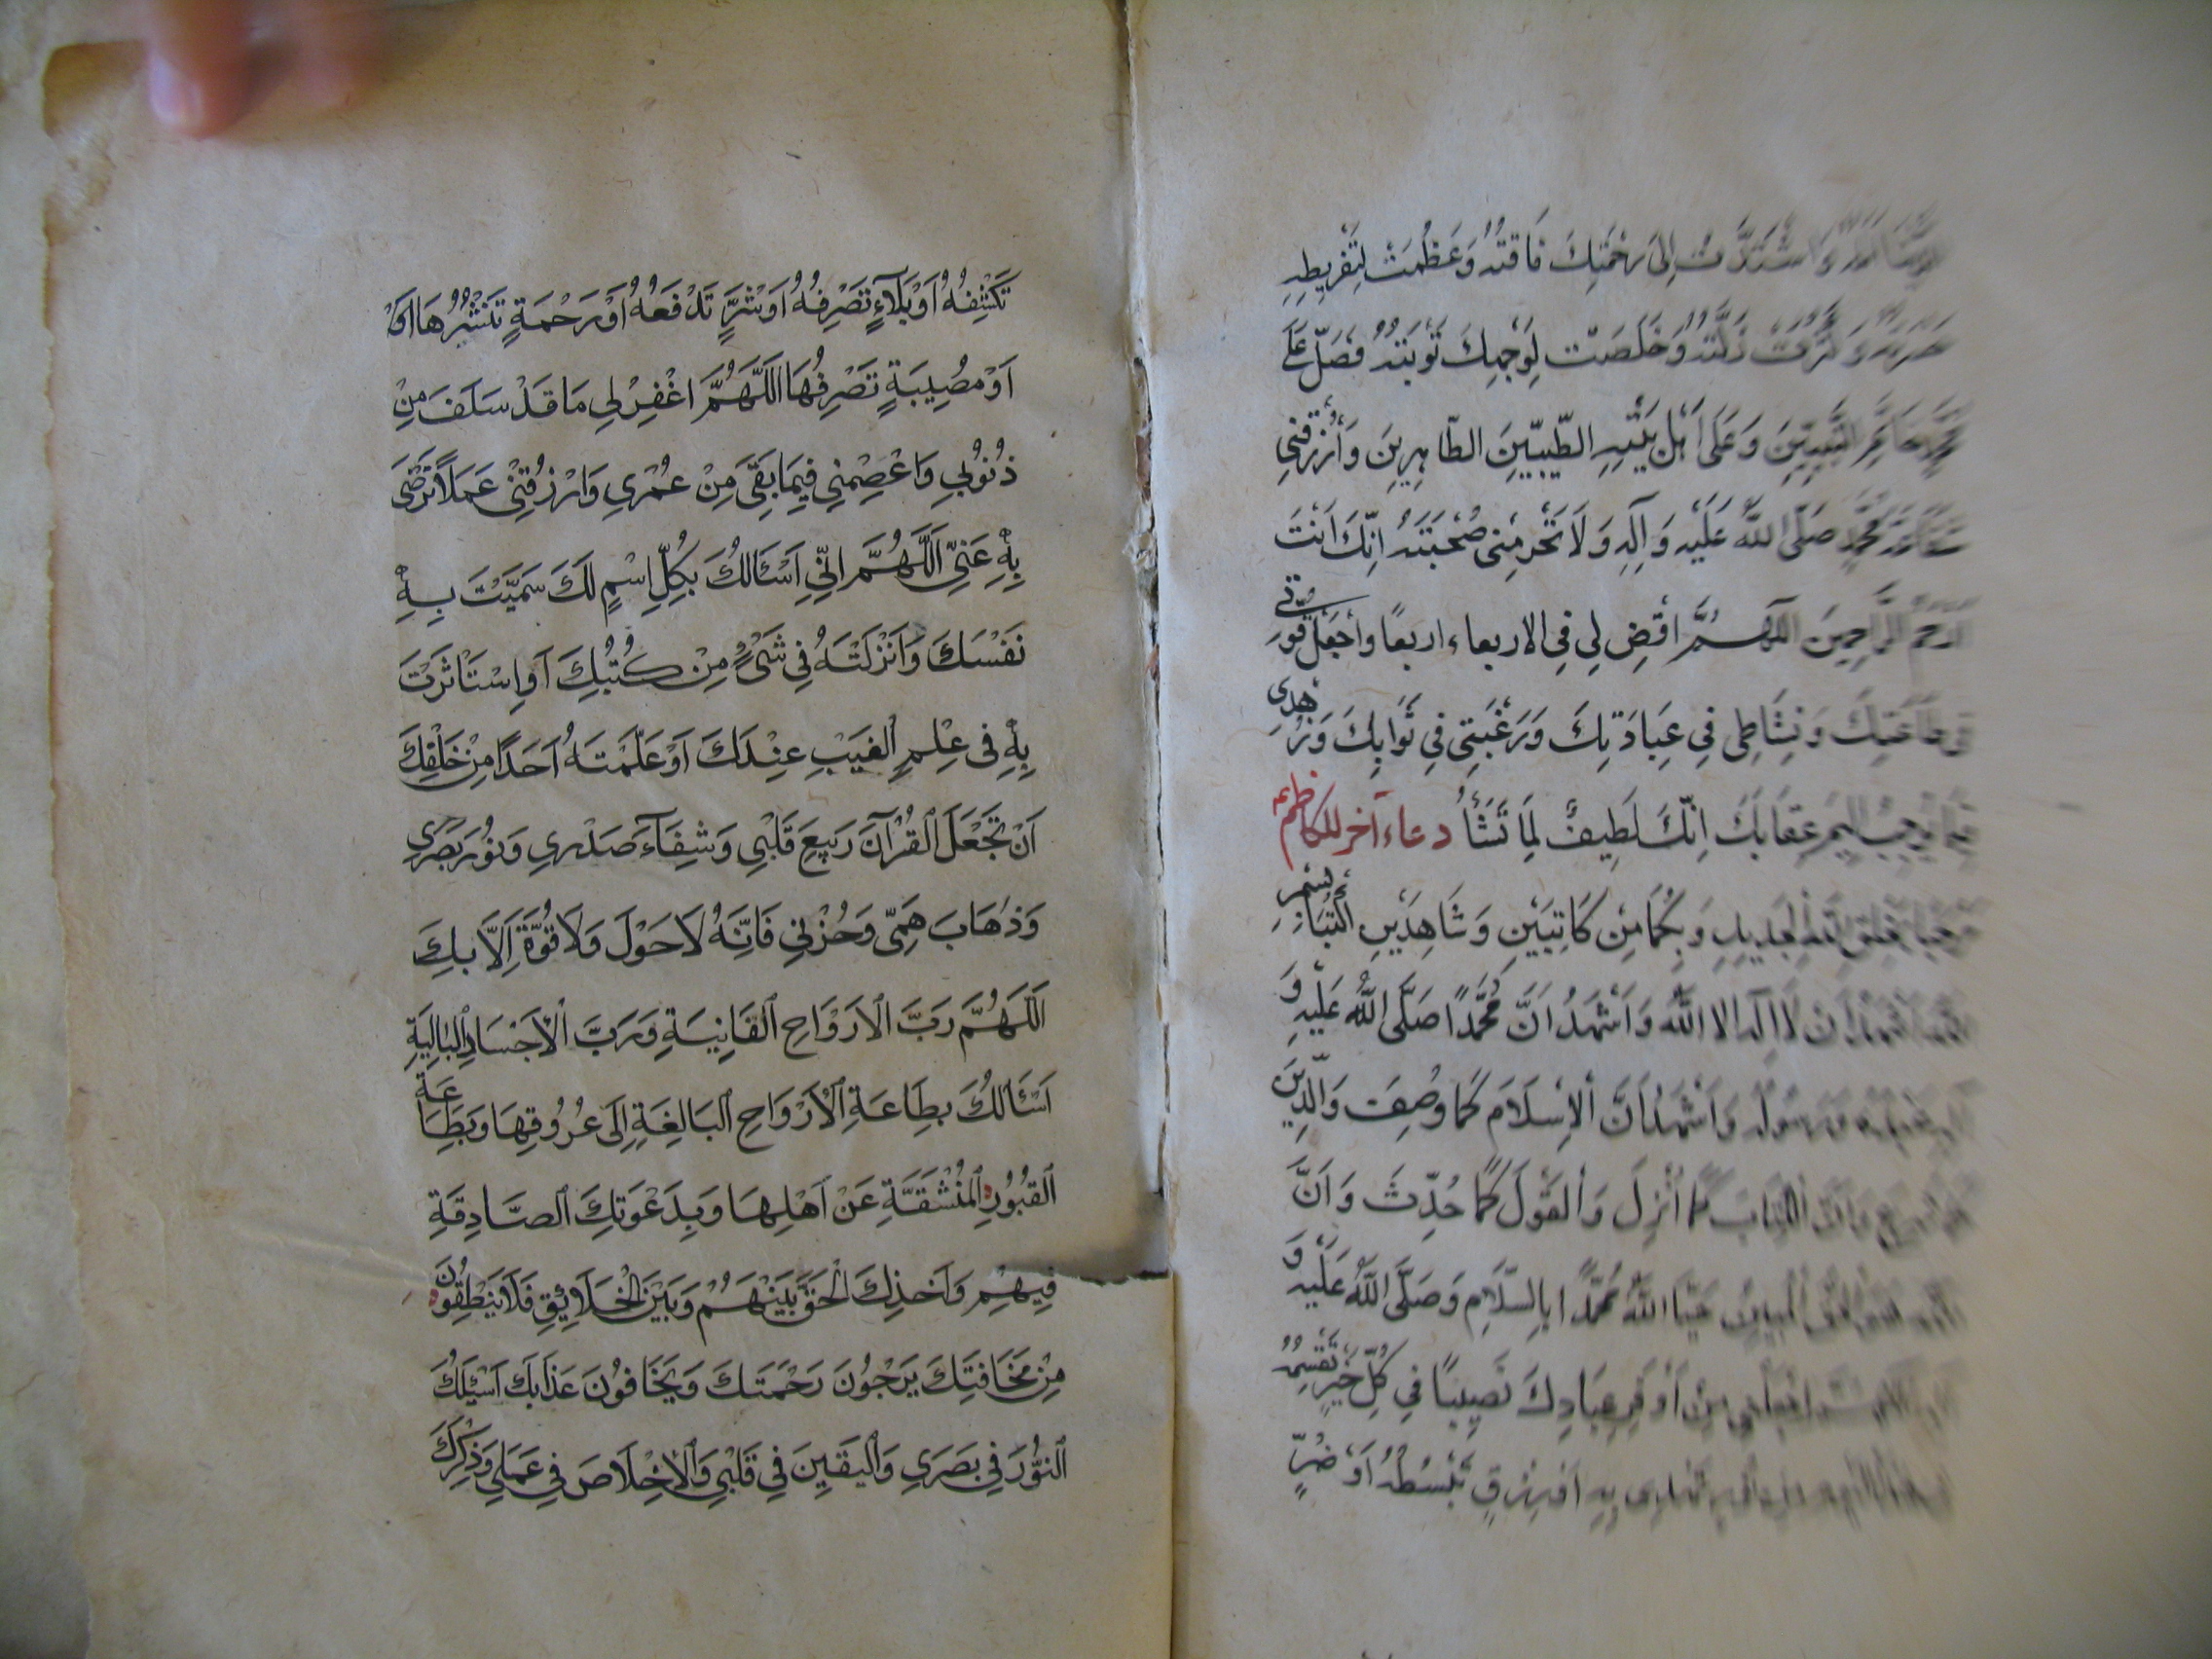 إِلَى رَحْمَتِكَ فَاقَتُهُ وَعَظُمَتْ لِتَفْرِيطِهِ
زَلَّتُهُ وَخَلَصَتْ لِوَجْهِكَ تَوْبَتُهُ فَصَلِّ عَلَى
النَّبِيِّينَ وَعَلَى أَهْلِ بَيْتِهِ الطَّيِّبِينَ الطَّاهِرِينَ وَارْزُقْنِي
مُحَمَّدٍ صَلَّى اللهُ عَلَيْهِ وَآلِهِ وَلَا تَحْرِمْنِي صُحْبَتَهُ إِنَّكَ أَنْتَ
أَرْحَمُ الرَّاحِمِينَ اللَّهُمَّ اقْضِ لِي فِي الاربعاء اربعًا وَاجْعَلْ قُوَّتِي
فِي طَاعَتِكَ وَنِشَاطِي فِي عِبَادَتِكَ وَرَغْبَتِي فِي ثَوَابِكَ وَزُهْدِي
عِقَابِكَ إِنَّكَ لَطِيفٌ لِمَا تَشَأُ دعاء آخر للكاظم ع
الْجَدِيدِ وَبِكُمَا مِنْ كَاتِبَيْنِ وَشَاهِدَيْنِ اكْتُبَا بِسْمِ
لَا اِلَهَ الا اللهُ وَأَشْهَدُ أَنَّ مُحَمَّدًا صَلَّى اللهُ عَلَيْهِ وَ
وَرَسُولُهُ وَأَشْهَدُ أَنَّ الْإِسْلَامَ كَمَا وُصِفَ وَالدِّينَ
الْكِتَابَ كَمَا أُنْزِلَ وَالْقَوْلَ كَمَا حُدِّثَ وَأَنَّ
حَيَّا اللهُ مُحَمَّدًا بِالسَّلَامِ وَصَلَّى اللهُ عَلَيْهِ وَ
مِنْ أَوْفَرِ عِبَادِكَ نَصِيبًا فِي كُلِّ خَيْرٍ تَقْسِمُهُ
بِهِ أَوْ رِزْقٍ تَبْسُطُهُ أَوْ ضُرٍّ
تَكْشِفُهُ اَوْ بَلَآءٍ تَصْرِفُهُ اَوْ شَرٍّ تَدْفَعُهُ اَوْ رَحْمَةٍ تَنْشُرُهَا اَوْ
اَوْ مُصِيبَةٍ تَصْرِفُهَا اَللَّهُمَّ اغْفِرْ لِي مَا قَدْ سَلَفَ مِنْ
ذُنُوبِي وَاعْصِمْنِي فِيمَا بَقِيَ مِنْ عُمْرِي وَارْزُقْنِي عَمَلًا تَرْضَى
بِهِ عَنِّي اَللَّهُمَّ اِنِّي اَسْئَالُكَ بِكُلِّ اِسْمٍ لَكَ سَمَّيْتَ بِهِ
نَفْسَكَ وَاَنْزَلْتَهُ فِي شَيْءٍ مِنْ كُتُبِكَ اَوِ اسْتَاْثَرْتَ
بِهِ فِي عِلْمِ الْغَيْبِ عِنْدَكَ اَوْ عَلَّمْتَهُ اَحَدًا مِنْ خَلْقِكَ
اَنْ تَجْعَلَ الْقُرْآنَ رَبِيعَ قَلْبِي وَشِفَآءَ صَدْرِي وَنُورَ بَصَرِي
وَذَهَابَ هَمِّي وَحُزْنِي فَاِنَّهُ لَا حَوْلَ وَلَا قُوَّةَ اِلَّا بِكَ
اَللَّهُمَّ رَبَّ الْاَرْوَاحِ الْفَانِيَةِ وَرَبَّ الْاَجْسَادِ الْبَالِيَةِ
اَسْئَالُكَ بِطَاعَةِ الْاَرْوَاحِ الْبَالِغَةِ اِلَى عُرُوقِهَا وَبِطَاعَةِ
الْقُبُورِ الْمُنْشَقَّةِ عَنْ اَهْلِهَا وَبِدَعْوَتِكَ الصَّادِقَةِ
فِيهِمْ وَاَخْذِكَ الْحَقَّ بَيْنَهُمْ وَبَيْنَ الْخَلَائِقِ فَلَا يَنْطِقُونَ
مِنْ مَخَافَتِكَ يَرْجُونَ رَحْمَتَكَ وَيَخَافُونَ عَذَابَكَ اَسْئَلُكَ
النُّورَ فِي بَصَرِي وَالْيَقِينَ فِي قَلْبِي وَالْاِخْلَاصَ فِي عَمَلِي وَذِكْرَكَ